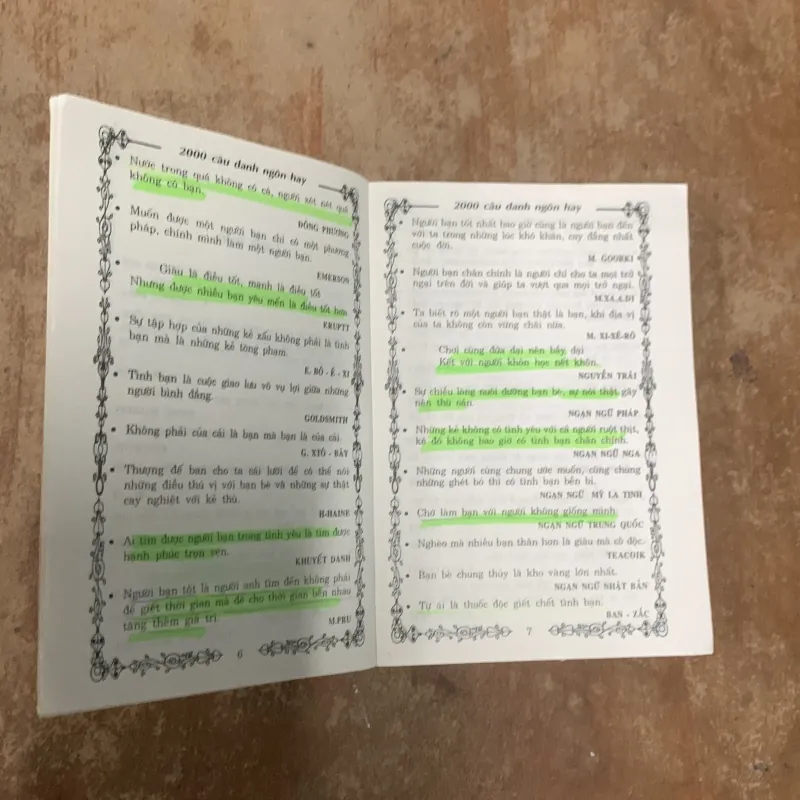 2000 câu danh ngôn hay
• Nước trong quá không có cá, người xét nét quá
không có bạn.
ĐÔNG PHƯƠNG
• Muốn được một người bạn chỉ có một phương
pháp, chính mình làm một người bạn.
EMERSON
• Giàu là điều tốt, mạnh là điều tốt
Nhưng được nhiều bạn yêu mến là điều tốt hơn
ERUPTT
• Sự tập hợp của những kẻ xấu không phải là tình
bạn mà là những kẻ tòng phạm.
E. BÔ - Ê - XI
• Tình bạn là cuộc giao lưu vô vụ lợi giữa những
người bình đẳng.
GOLDSMITH
• Không phải của cải là bạn mà bạn là của cải.
G. XIÔ - BÂY
• Thượng đế ban cho ta cái lưỡi để có thể nói
những điều thú vị với bạn bè và những sự thật
cay nghiệt với kẻ thù.
H-HAINE
• Ai tìm được người bạn trong tình yêu là tìm được
hạnh phúc trọn vẹn.
KHUYẾT DANH
• Người bạn tốt là người anh tìm đến không phải
để giết thời gian mà để cho thời gian bên nhau
tăng thêm giá trị
M.PRU
6
2000 câu danh ngôn hay
• Người bạn tốt nhất bao giờ cũng là người bạn đến
với ta trong những lúc khó khăn, cay đắng nhất
cuộc đời.
M. GOORKI
• Người bạn chân chính là người chỉ cho ta mọi trở
ngại trên đời và giúp ta vượt qua mọi trở ngại.
M.XA.A.ĐI
• Ta biết rõ một người bạn thật là bạn, khi địa vị
của ta không còn vững chãi nữa.
M. XI-XÊ-RÔ
• Chơi cùng đứa dại nên bầy dại
Kết với người khôn học nết khôn.
NGUYỄN TRÃI
• Sự chiều lòng nuôi dưỡng bạn bè, sự nói thật gây
nên thù oán.
NGẠN NGỮ PHÁP
• Những kẻ không có tình yêu với cả người ruột thịt,
kẻ đó không bao giờ có tình bạn chân chính.
NGẠN NGỮ NGA
• Những người cùng chung ước muốn, cùng chung
những ghét bỏ thì có tình bạn bền bỉ.
NGẠN NGỮ MỸ LA TINH
• Chớ làm bạn với người không giống mình
NGẠN NGỮ TRUNG QUỐC
• Nghèo mà nhiều bạn thân hơn là giàu mà cô độc.
TEACDIK
• Bạn bè chung thủy là kho vàng lớn nhất.
NGẠN NGỮ NHẬT BẢN
• Tự ái là thuốc độc giết chết tình bạn.
BAN - ZẮC
7